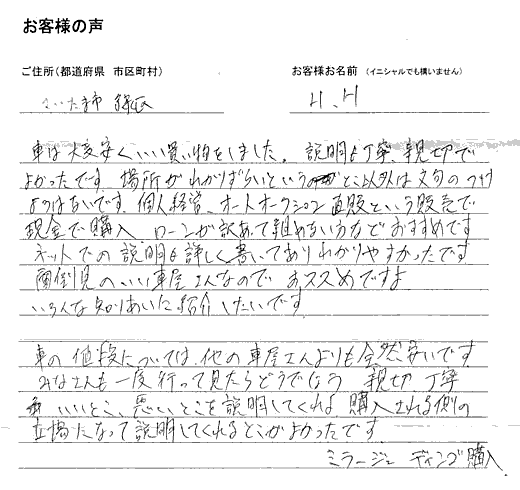 お客様の声
ご住所(都道府県 市区町村)
お客様お名前 (イニシャルでも構いません)
さいたま市 緑区
H.H
車は大変安くいい買い物をしました。説明も丁寧、親切で
よかったです。場所がわかりずらいという とこ以外は文句のつけ
ようはないです。個人経営、オートオークション直販という販売で
現金で購入、ローンが訳あって組めない方などおすすめです
ネットでの説明も詳しく書いてありわかりやすかったです
面倒見のいい車屋さんなので おススメですよ
いろんな知りあいに紹介したいです。
車の値段については、他の車屋さんよりも全然安いです
みなさんも一度行って見たらどうでしょう 親切 丁寧
いいとこ、悪いとこを説明してくれる。購入される側の
立場になって説明してくれるとこがよかったです
ミラージュ ディンゴ購入